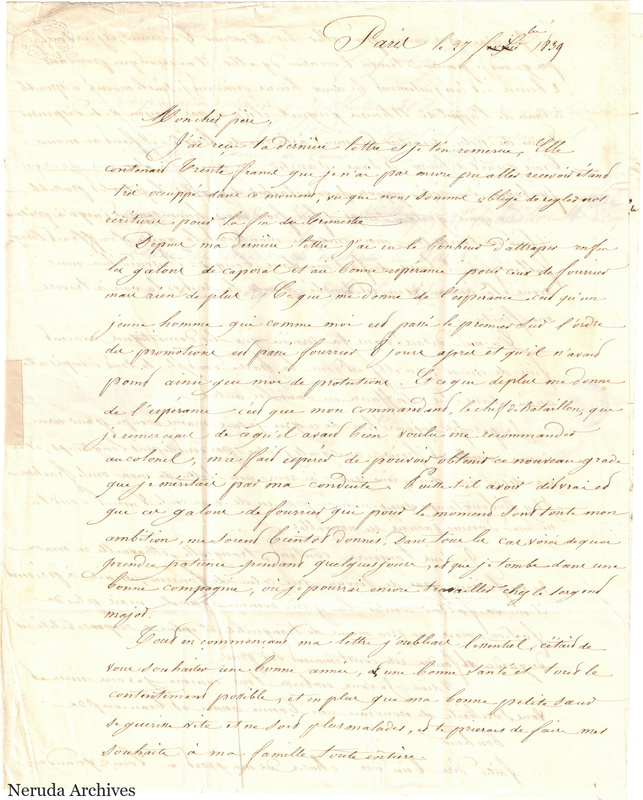 Paris le 27 bre 1839
Mon cher père,
J'ai reçu ta dernière lettre et je t'en remercie, Elle
contenait trente francs que je n'ai pas encore pu aller recevoir étant
très occuppé dans ce moment, vu que nous somme obligé de regler nos
écritures pour la fin du trimestre
Depuis ma dernière lettre J'ai eu le bonheur d'attraper enfin
les galons de caporal et ai bonne espérance pour ceux de fourrier
mais rien de plus Ce qui me donne de l'espérance c'est qu'un
jeune homme qui comme moi est passé le premier sur l'ordre
des promotions est passé fourrier 8 jours après et qu'il n'avait
point ainsi que moi de protections. Et ce qui de plus me donne
de l'espérance c'est que mon commandant, le chef de Bataillon, que
je remerciais de ce qu'il avait bien voulu me recommander
au colonel, m'a fait espérer de pouvoir obtenir ce nouveau grade
que je méritais par ma conduite. Puisse-t-il avoir dit vrai et
que ces galons de fourrier qui pour le moment sont toute mon
ambition, me soient bientôt donnés. Dans tous les cas voici de quoi
prendre patience pendant quelques jours, et que je tombe dans une
bonne compagnie, où je pourrai encore travailler chez le sergent
major.
Tout en commençant ma lettre j'oubliais l'essentiel, c'était de
vous souhaiter une bonne année, une bonne santé et tout le
contentement possible, et en plus que ma bonne petite sœur
se guérisse vite et ne soit plus malade, et te prierais de faire mes
souhaits à ma famille toute entière.
Neruda Archives